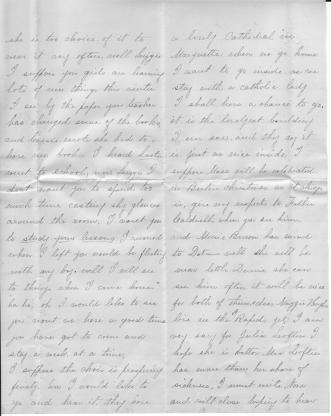 she is too choice of it to
wear it very often, well Lizzie
I suppose you girls are learning
lots of new things this winter
I see by the paper your teacher
has changed some of the books
and bessie wrote she had to
have new books I heard
went to school, now Lizzie I
don't want you to spend too
much time casting shy glances
around the room, I want you
to study your lessons I
when I left you would be flirting
with my boy, well I will see
to things when I come home
ha ha, oh I would like to see
you wont we have a good time
you have got to come and
stay a week at a time,
I suppose the choir is progressing
finely, how I would like to
go and hear it, they
a lovely Cathedral in
Marquette when we go home
I want to go inside, as we
stay with a catholic lady
I shall have a chance to go,
it is the loveliest building
I ever saw, and they say it
is just as nice inside, I
suppose Mass will be celebrated
in Berlin christmas as it always
is, give my respects to Father
when you see him
and Mamie has moved
to Det well she will be
near little Dennie she can
see him often it will be nice
for both of them, does Maggie
live in the Rapids yet, I am
very sorry for Julia I
hope she is better, Mrs
has more than her share of
sickness, I must write
and will close hoping to hear